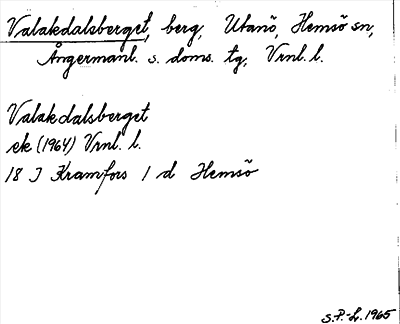 Valakdalsberget, berg, Utanö, Hemsö sn,
Ångermanl. s. doms. tg, Vrnl. l.
Valakdalsberget
ek (1964) Vrnl. l.
18 J Kramfors 1 d Hemsö
S.P.-L. 1965